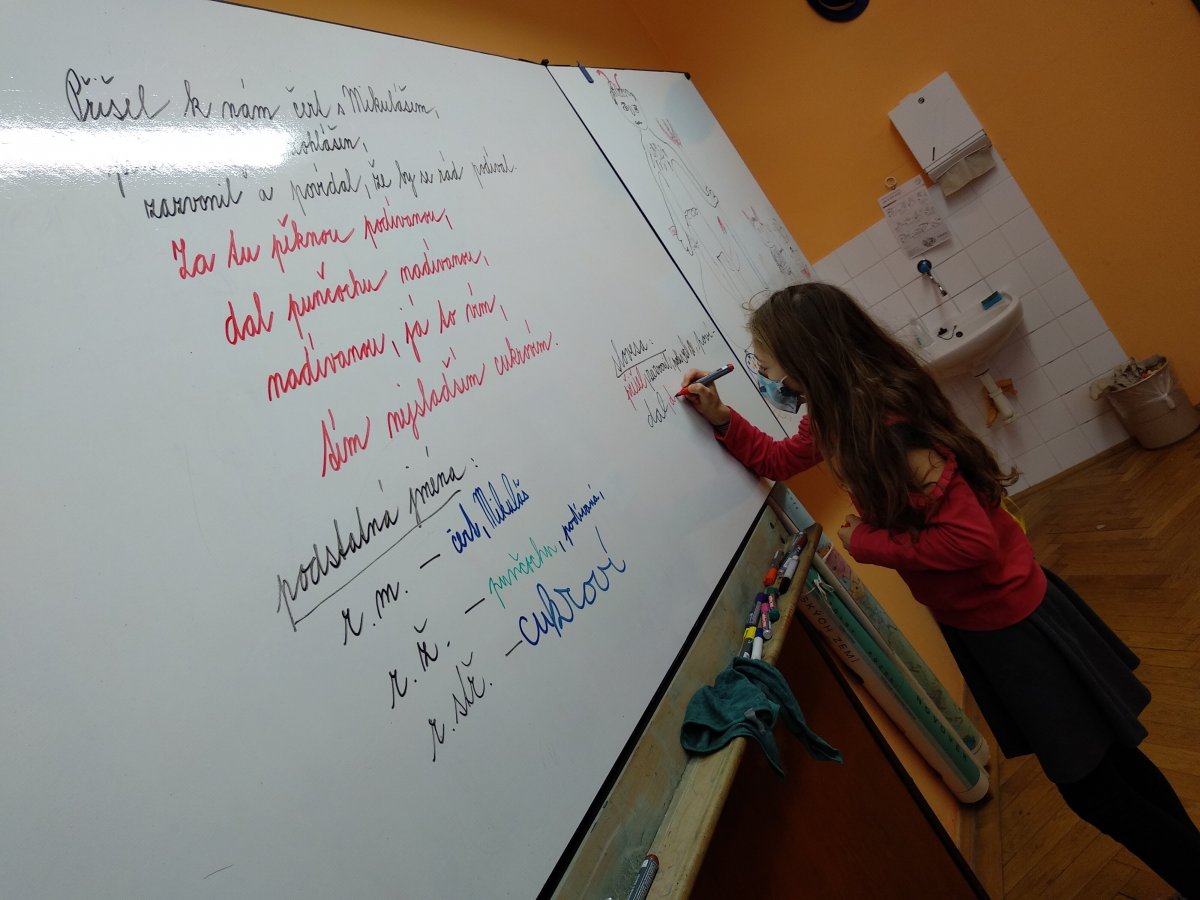 Přišel k nám čert s Mikulášem,
zazvonil a povídal, že by se rád podíval.
Za tu pěknou podívanou,
dal punčochu nadívanou,
nadívanou, já to vím,
tím nejsladším cukrovím.
podstatná jména:
r. m. – čert, Mikuláš
r. ž. – punčochu, podívaná,
r. stř. – cukroví
slovesa:
přišel
dal,
SKÝCH ZEMÍ